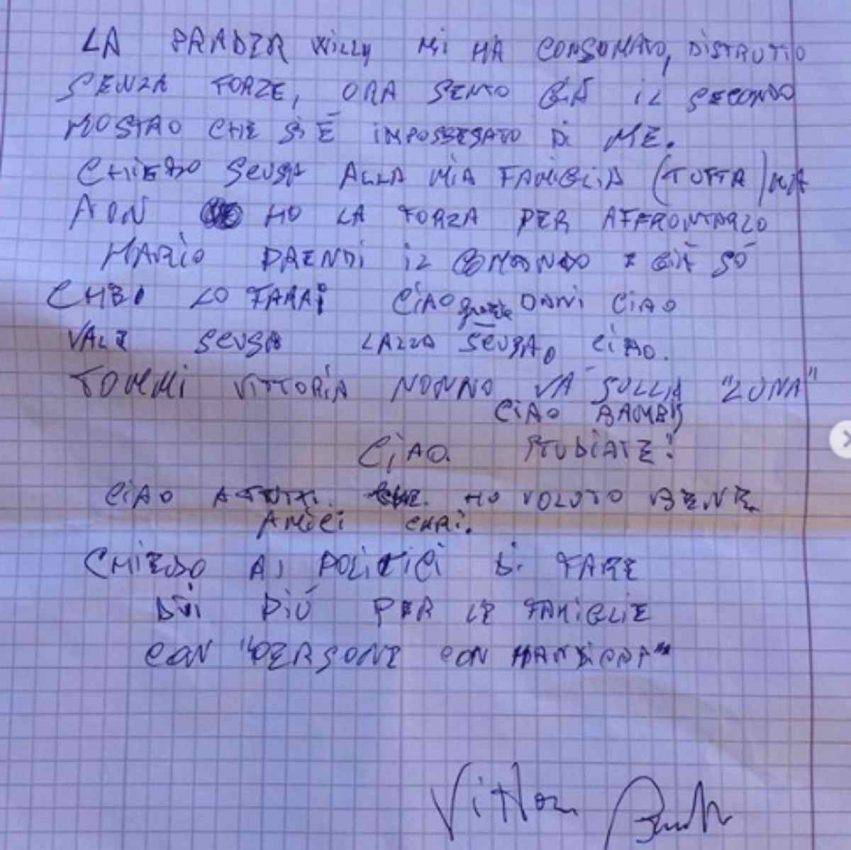 LA PRADER WILLY MI HA CONSUMATO, DISTRUTTO
SENZA FORZE, ORA SENTO GIÀ IL SECONDO
MOSTRO CHE SI È IMPOSSESATO DI ME.
CHIEDO SCUSA ALLA MIA FAMIGLIA (TUTTA) MA
NON HO LA FORZA PER AFFRONTARLO
MARIO PRENDI IL COMANDO E GIÀ SÒ
CHE LO FARAI CIAO grazie DANI CIAO
VALE SCUSA LALLA SCUSA, CIAO.
TOMMI VITTORIA NONNO VÀ SULLA "LUNA"
CIAO BAMBI
CIAO. STUDIATE!
CIAO A TUTTI. HO VOLUTO BENE
AMICI CARI.
CHIEDO AI POLITICI DI FARE
DI PIÙ PER LE FAMIGLIE
CON "PERSONE CON HANDICAP"